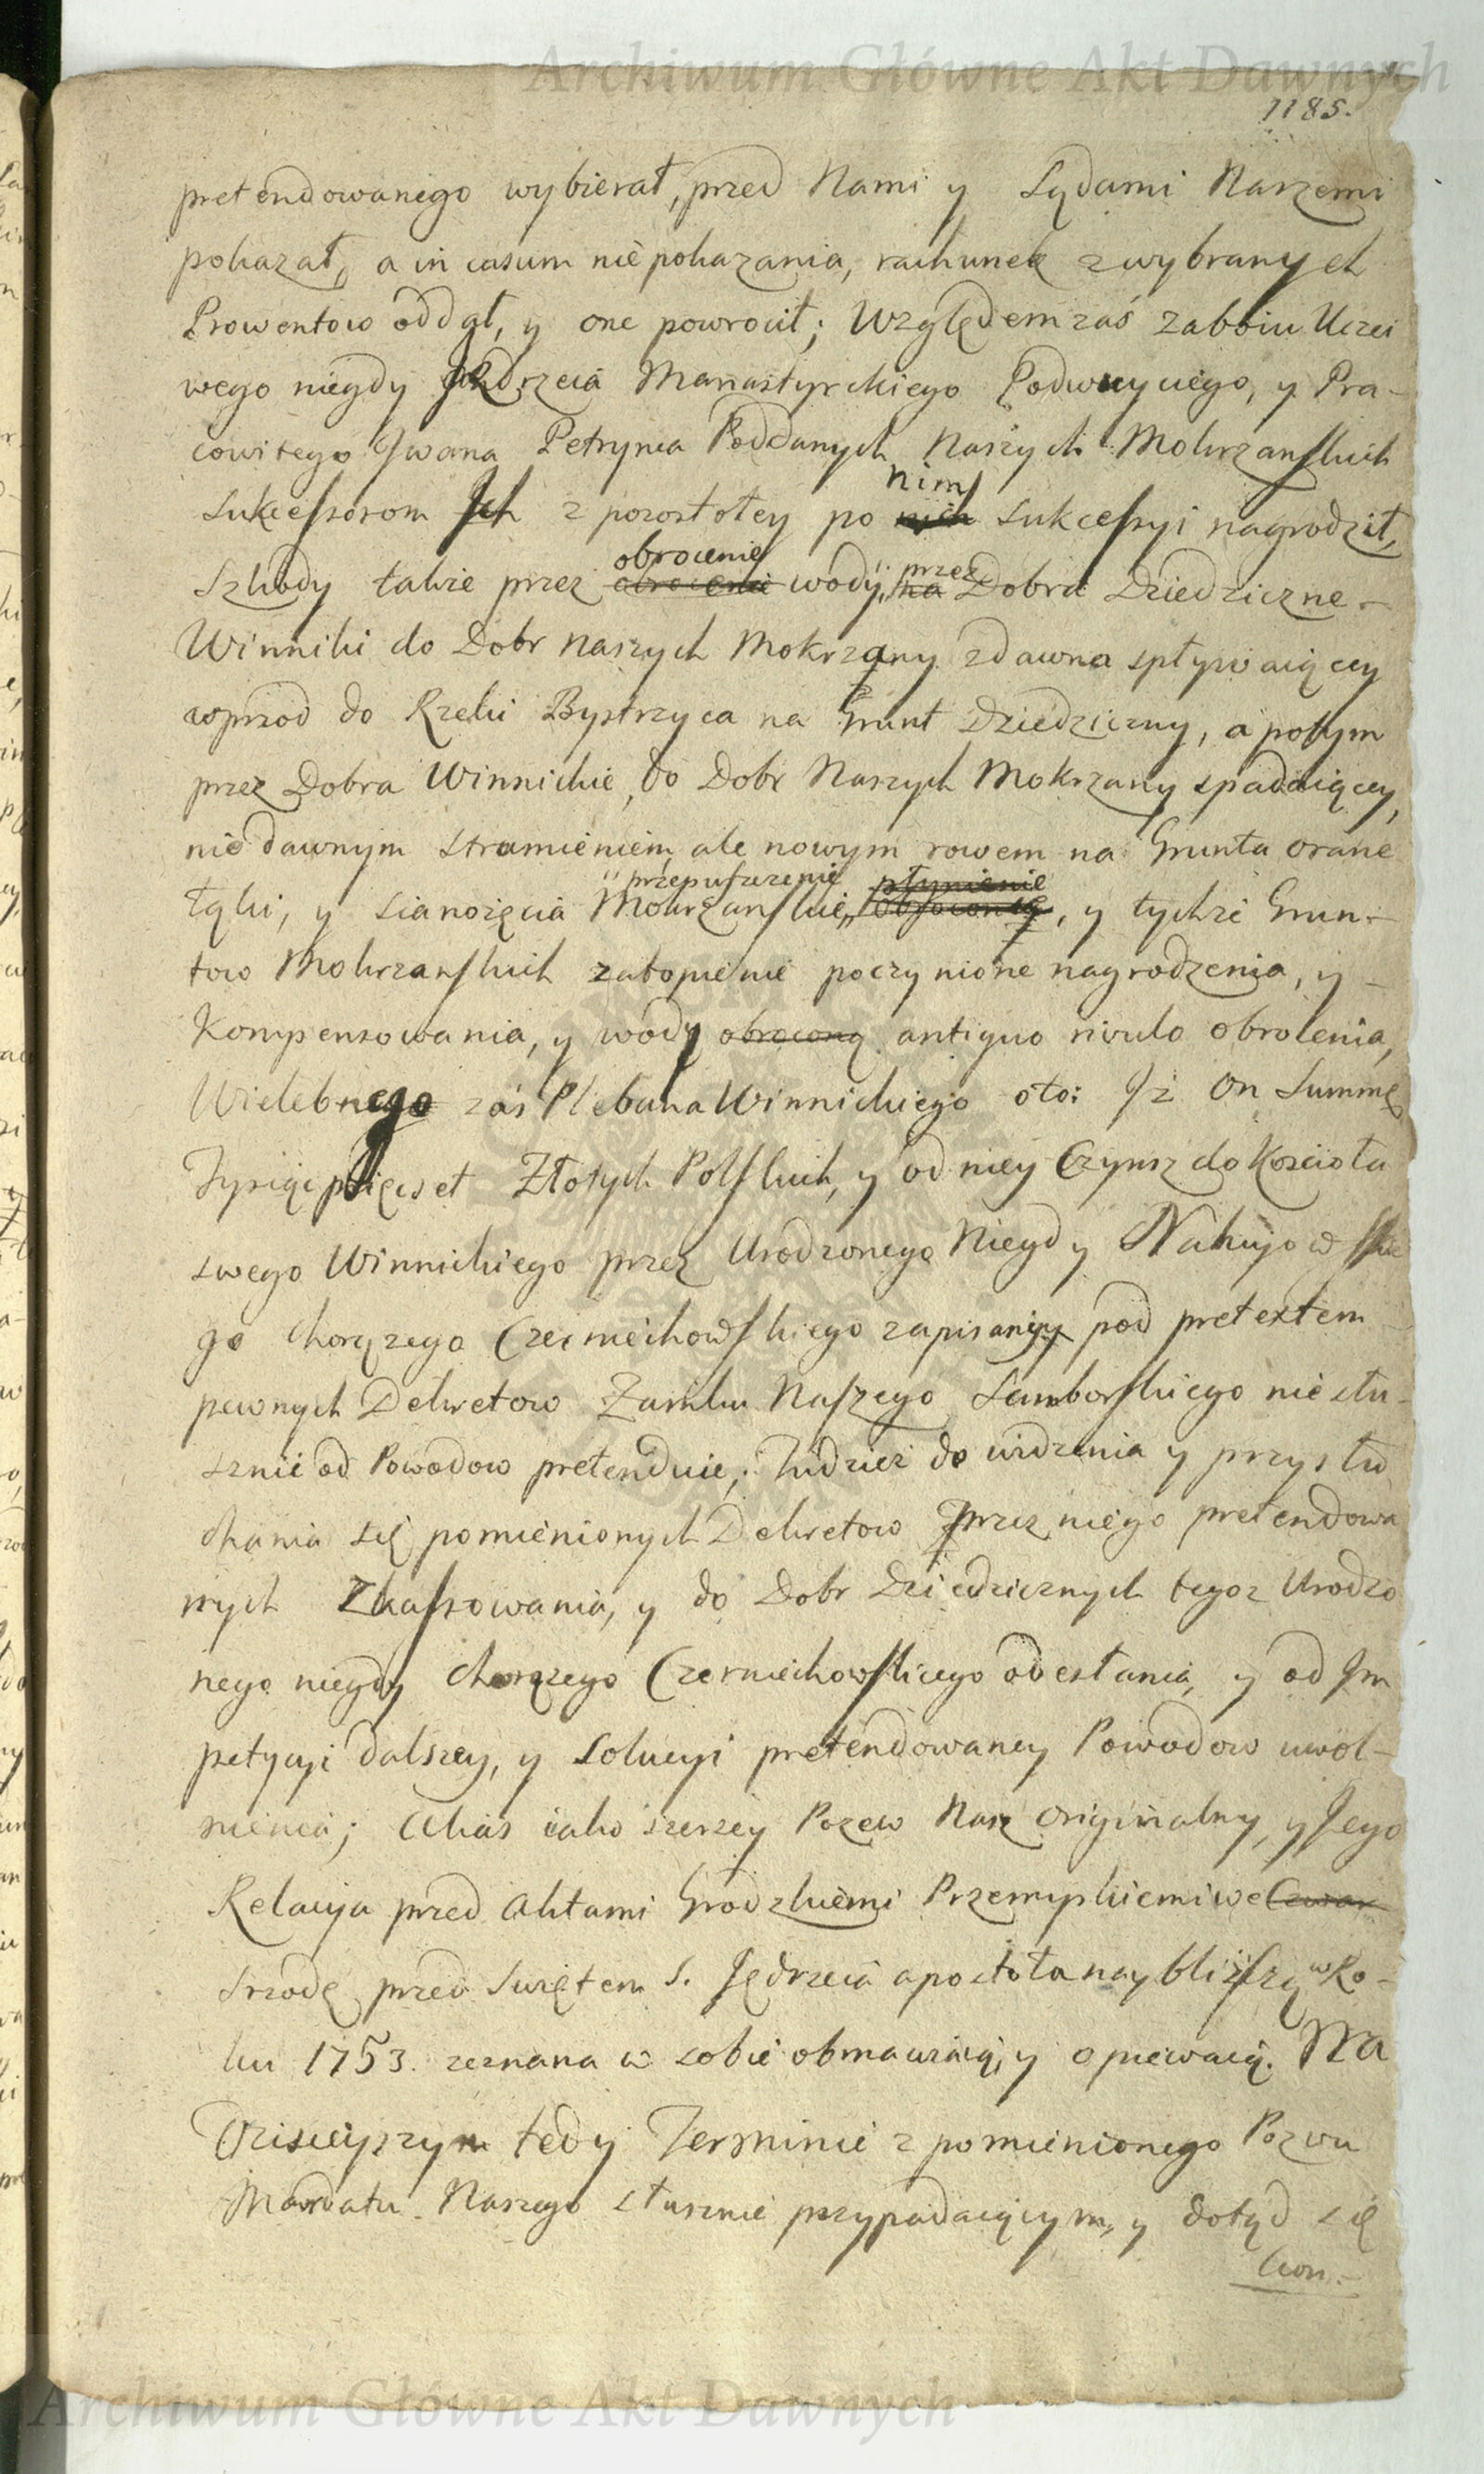 Archiwum Główne Akt Dawnych
1185.
pretendowanego wybierał, przed Nami y Sądami Naszemi
pokazał, a in casum niepokazania, rachunek z wybranych
Prowentow oddał, y one powrocił; Względem zaś zaboiu Uczci
wego niegdy Jędrzeia Manastyrskiego Podwuyciego, y Pra-
cowitego Jwana Petryna Poddanych Naszych Mokrzanskich
nim
Sukcessorom Jch z pozostołey po nich Sukcessyi nagrodził,
obrocenie przez
Szkody także przez obrocenie wody, na Dobra Dziedziczne-
Winniki do Dobr Naszych Mokrzany zdawna spływaiącey
wprzod do Rzeki Bystrzyca na Grunt Dziedziczny, a potym
przez Dobra Winnickie, do Dobr Naszych Mokrzany spadaiącey,
nie dawnym stramieniem, ale nowym rowem na Grunta orane
przepuszczenie płynienie
łąki, y sianożęcia Mokrzanskie, obroconą, y tychże Grun-
tow Mokrzanskich zatopienie poczynione nagrodzenia, y-
Kompensowania, y wody obroconą antiquo rivulo obrocenia,
Wielebnego zaś Plebana Winnickiego oto: Jż On Summę
Tysiąc pięcset Złotych Polskich, y od niey Czynsz do Kościoła
swego Winnickiego przez Urodzonego Niegdy Nahujowskie
go Chorązego Czerniechowskiego zapisaney pod pretextem
pewnych Dekretow Zamku Naszego Samborskiego niesłu-
sznie od Powodow pretenduie, Tudziez do widzenia y przysłu
chania się pomienionych Dekretow przez niego pretendowa
nych Zkassowania, y do Dobr Dziedzicznych tegoz Urodzo
nego niegdy Chorązego Czerniechowskiego odesłania, y od Jm
petycyi dalszey, y Solucyi pretendowaney Powodow uwol-
nienia; Aliàs iako szerzey Pozew Nasz Originalny, y Jego
Relacyja przed Aktami Grodzkiemi Przemyskiemi we Czwar
srzodę przed Swiętem S. Jędrzeia apostoła naybliższą w Ro-
ku 1753. zeznana w sobie obmawiaią, y opiewaią. Na
Dzisieyszym tedy Terminie z pomienionego Pozwu
Mandatu Naszego słusznie przypadaiącym, y dotąd się
kon.-
Archiwum Główne Akt Dawnych